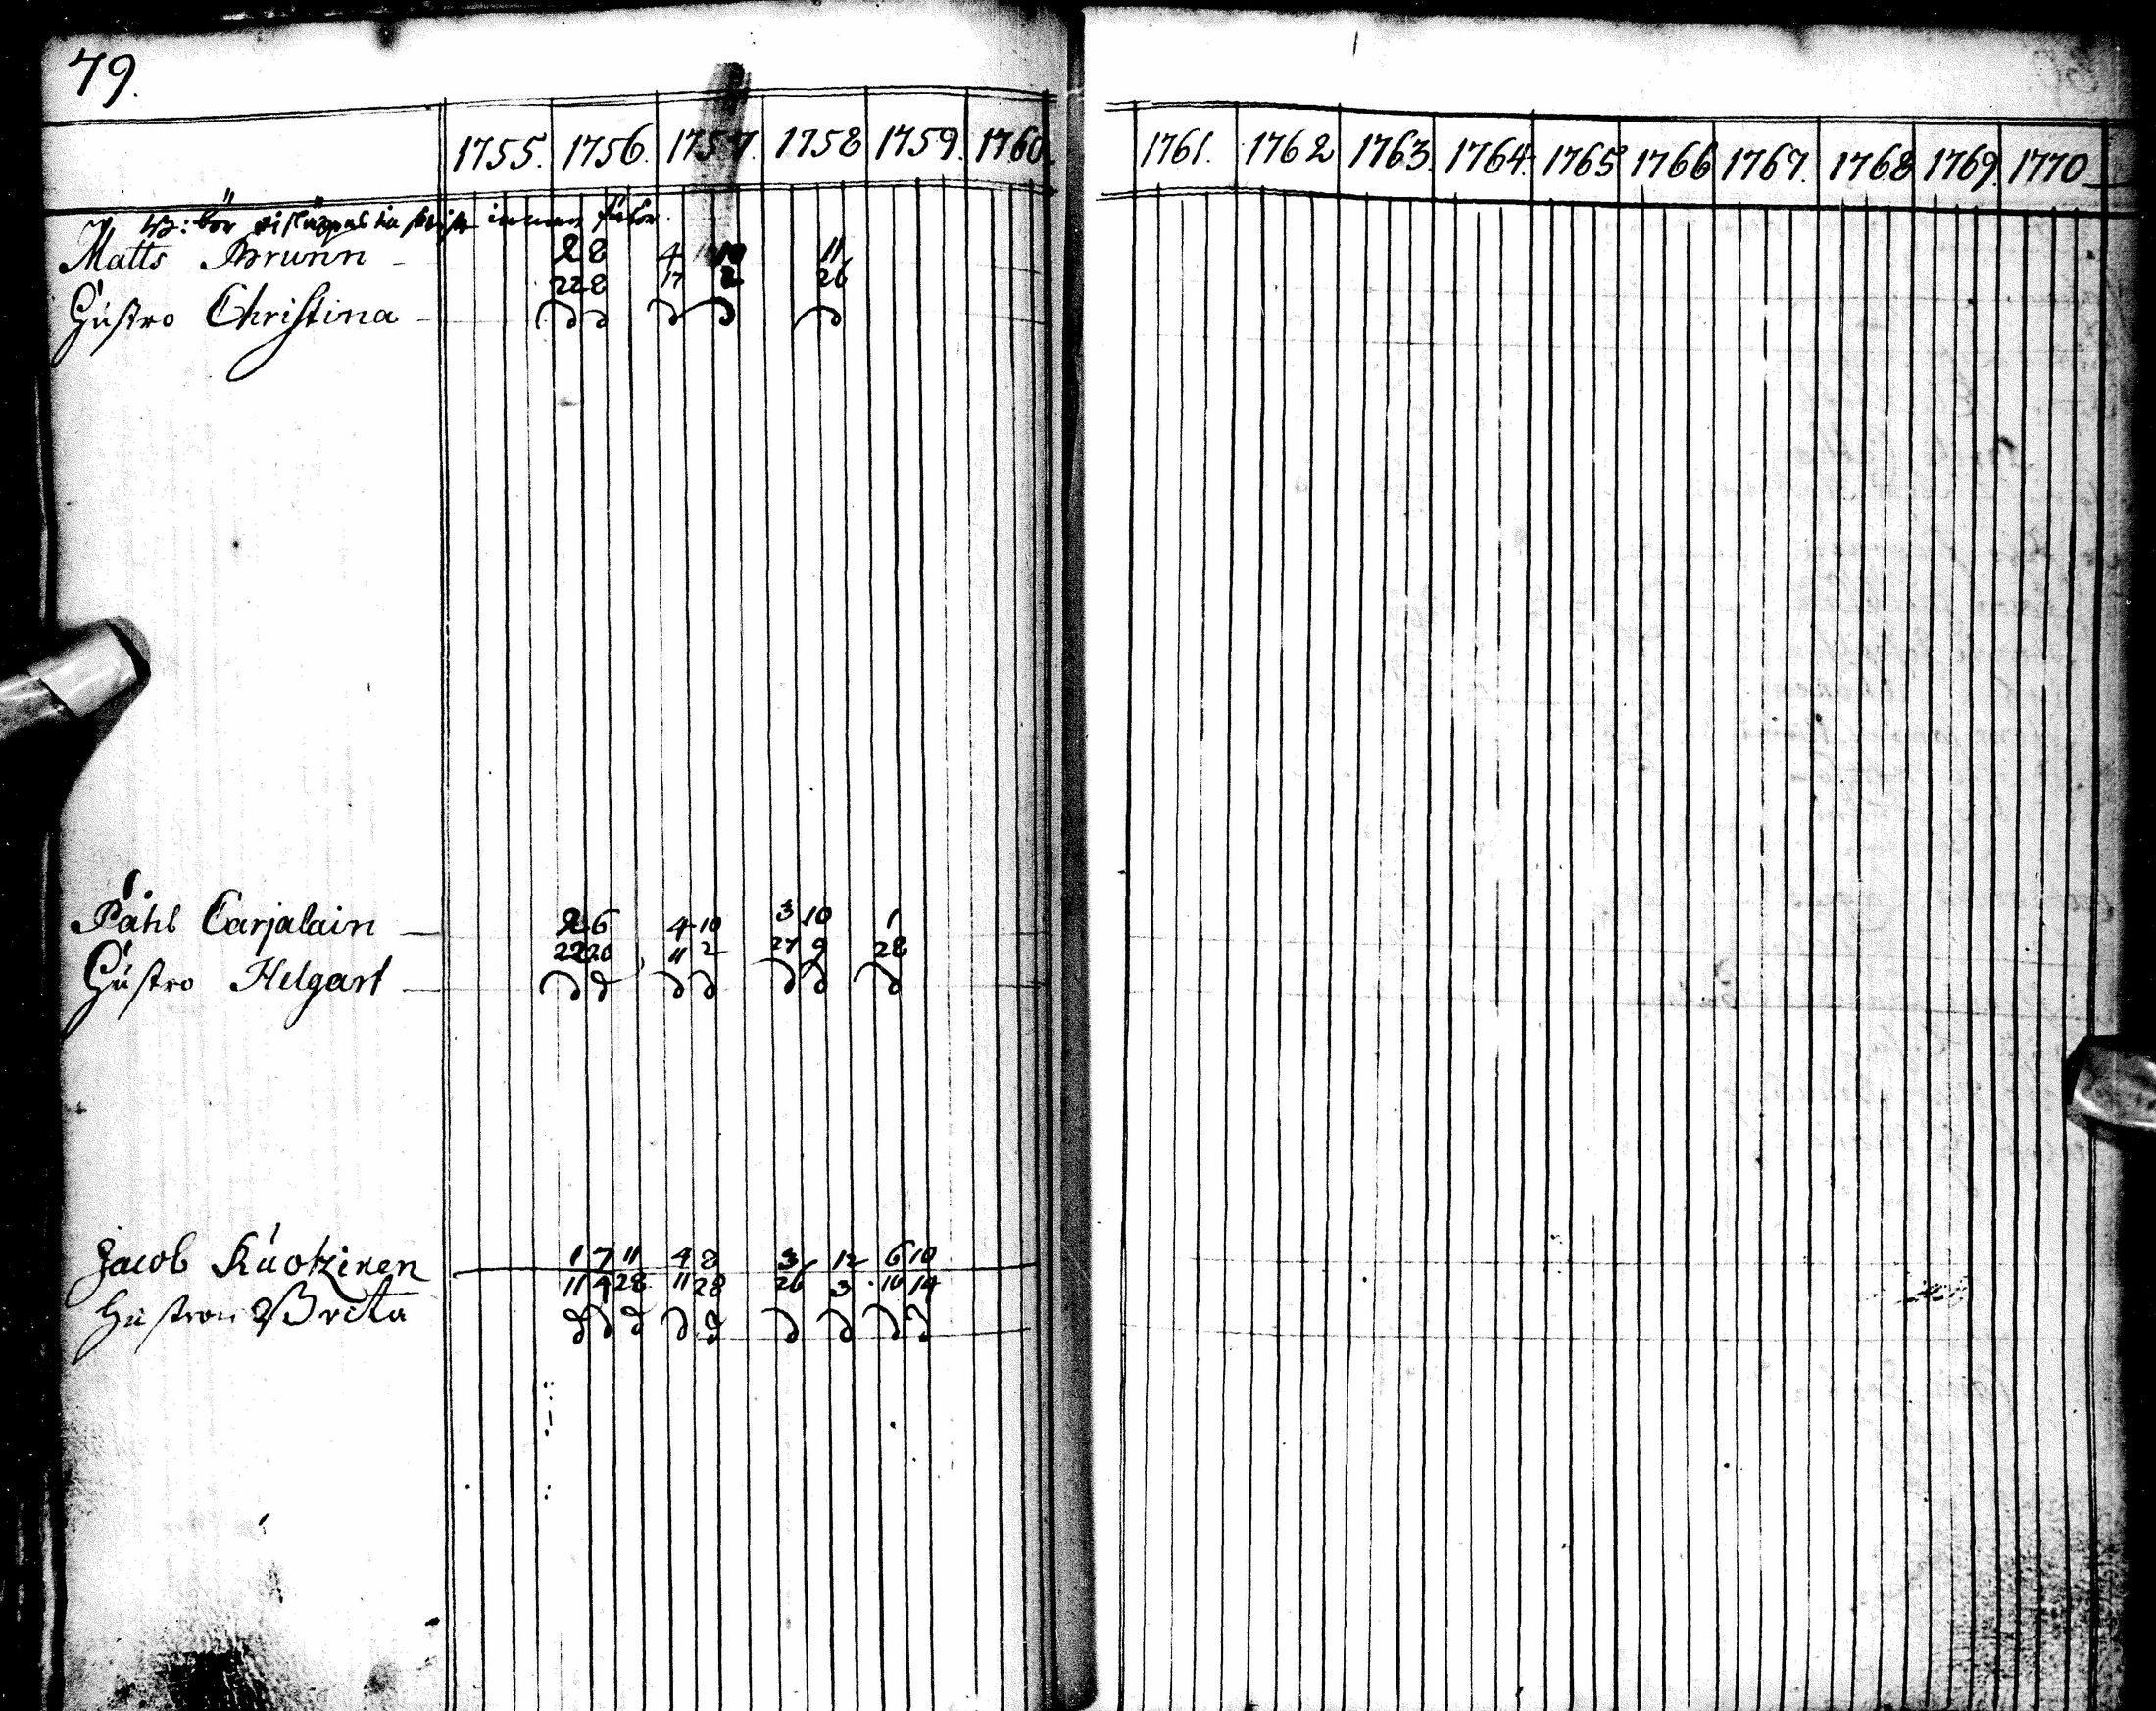 79.
1755. 1756. 1757. 1758 1759. 1760. 1761. 1762 1763. 1764. 1765 1766 1767. 1768 1769. 1770
bör
Matts Brunn 2 8 4 10 11
22 8 17 2 26
Hustro Christina
Påhl Carjalain 2 6 4 10 3 10 1
22 20 11 2 27 9 28
Hustro Helgart
Jacob Kuotzinen 1 7 11 4 8 3 12 6 10
11 4 28 11 28 26 3 10 14
Hustron Brita